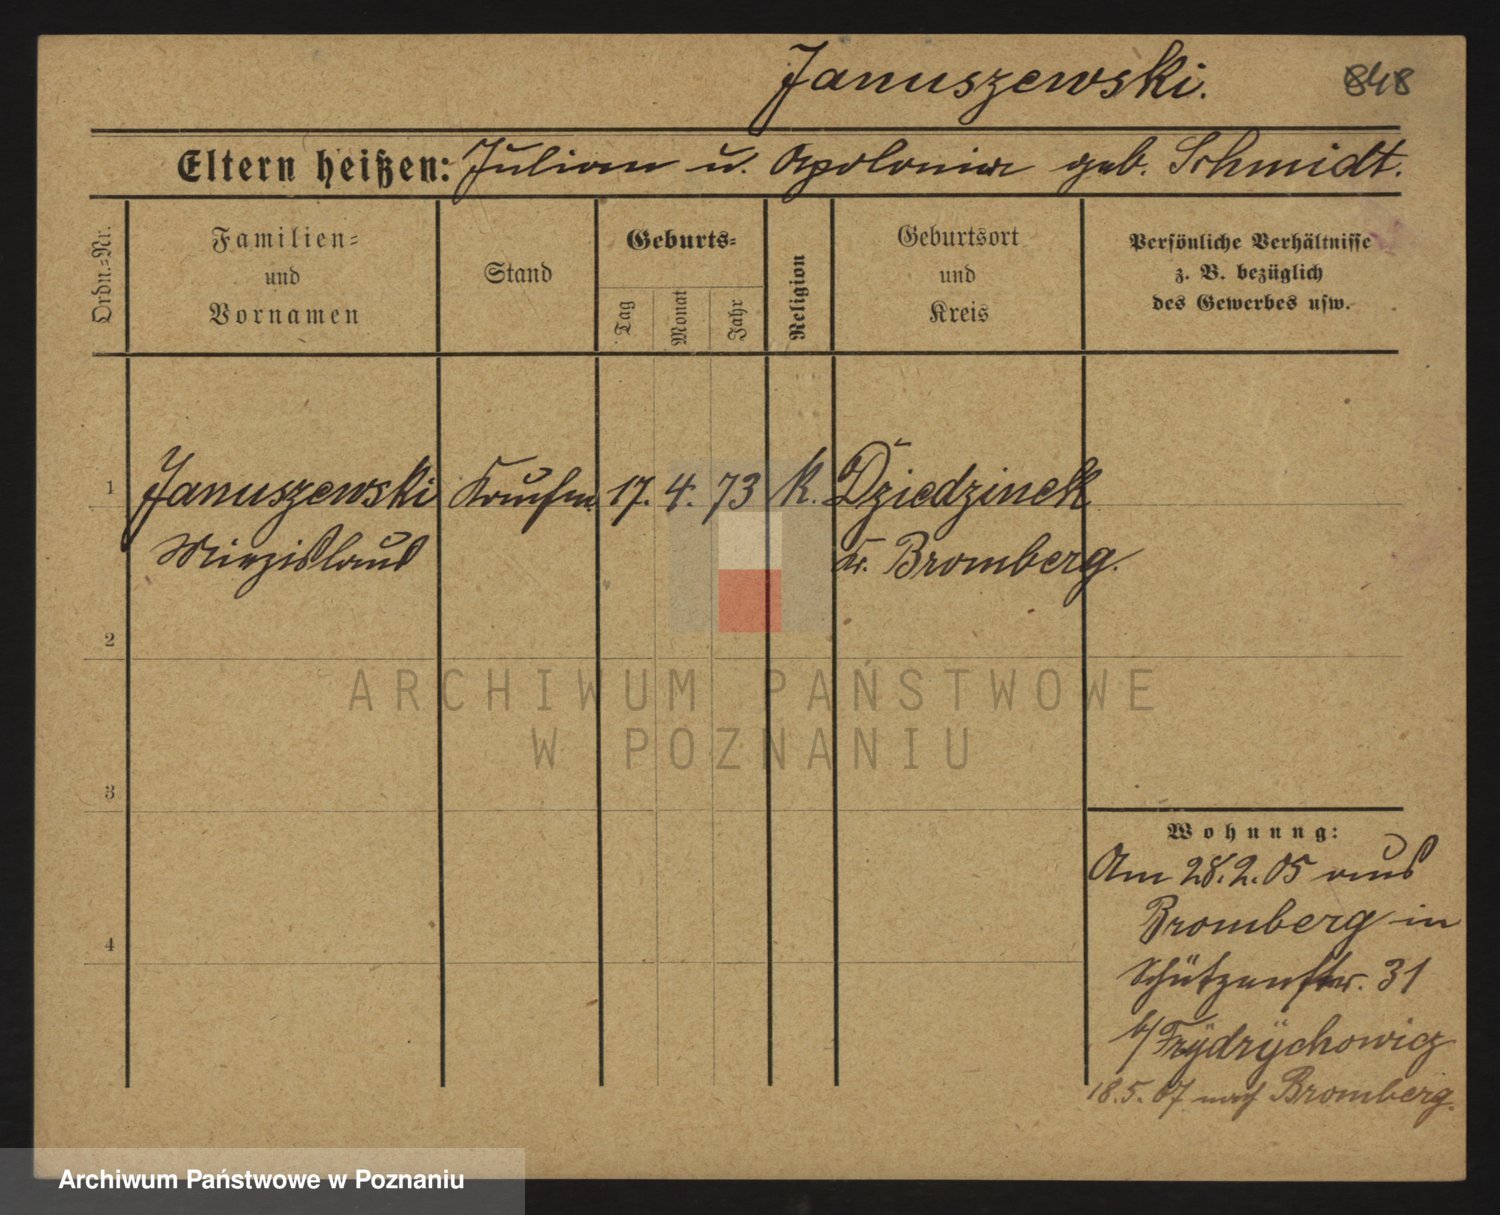 Januszewski.
848
Eltern heißen: Julian u. Apolonia geb. Schmidt.
Ordn.=Nr.
Familien=
und
Vornamen
Stand
Geburts=
Tag
Monat
Jahr
Religion
Geburtsort
und
Kreis
Persönliche Verhältnisse
z. B. bezüglich
des Gewerbes usw.
1
Januszewski Kaufm. 17. 4. 73 k. Dziedzinek
Miezislaus Kr. Bromberg.
2
ARCHIWUM PAŃSTWOWE
W POZNANIU
3
4
Wohnung:
Am 28.2.05 aus
Bromberg in
Schützenstr. 31
b/ Frydrychowicz
18.5.07 nach Bromberg.
Archiwum Państwowe w Poznaniu